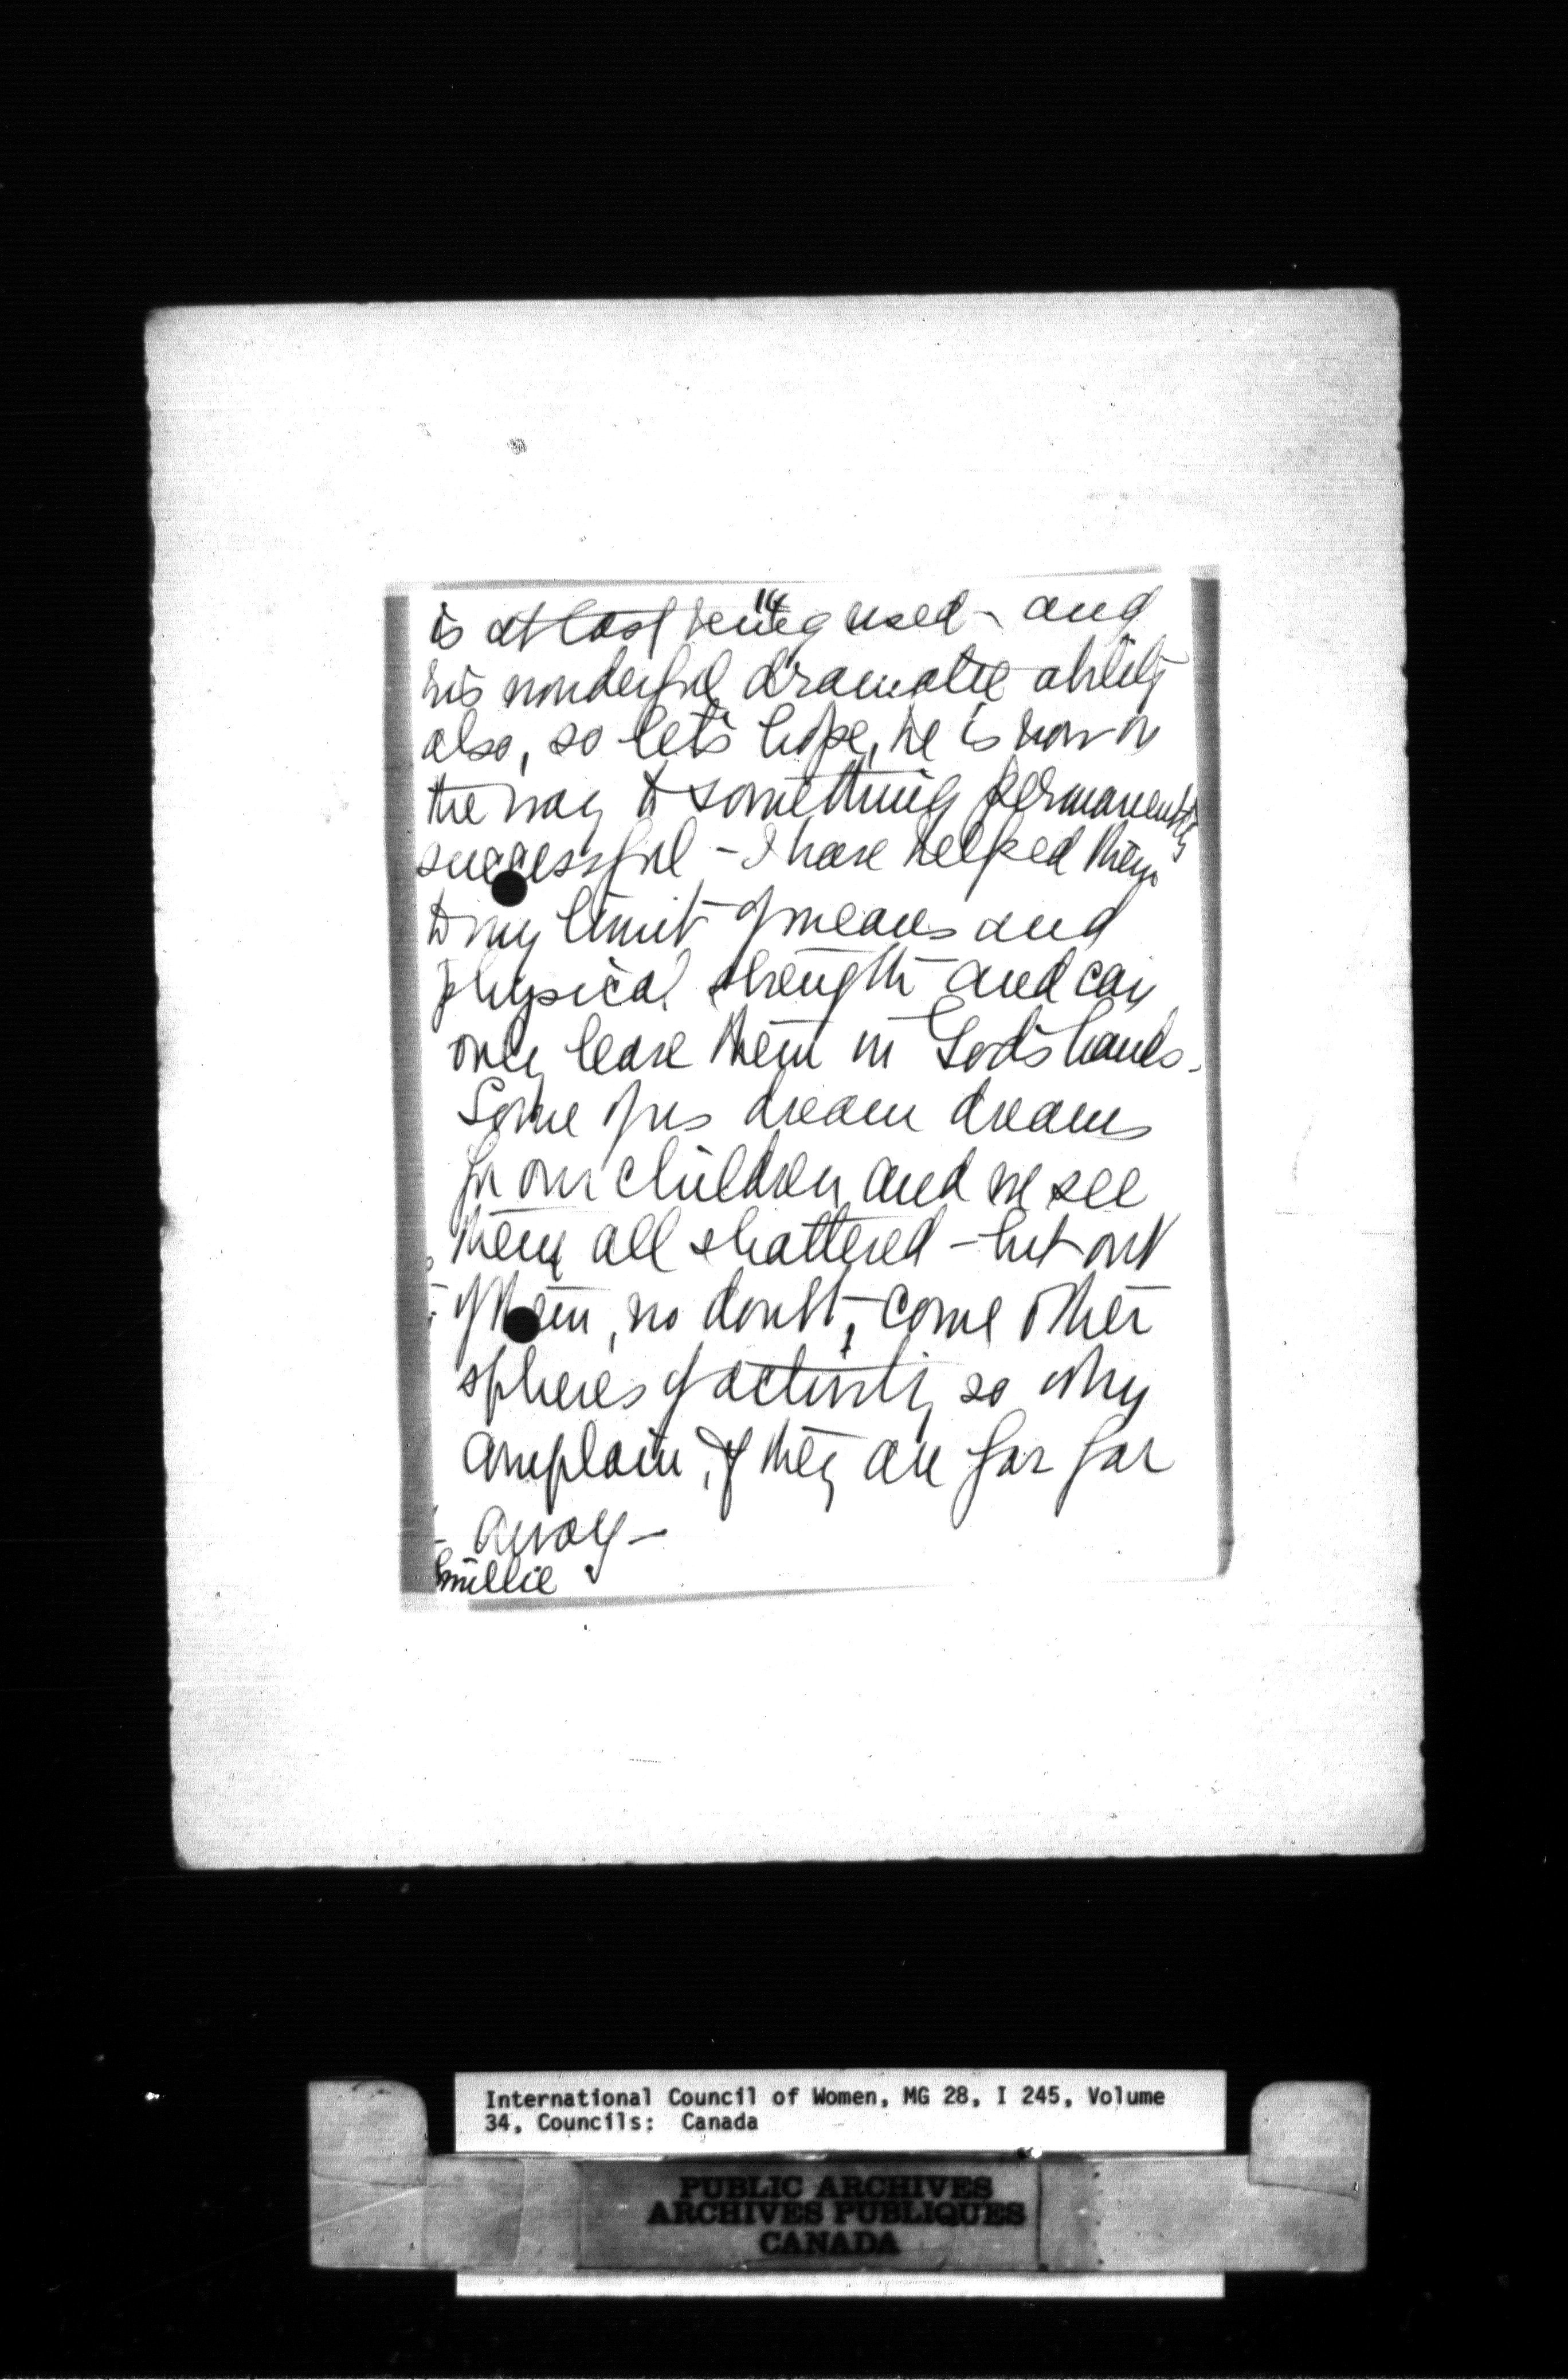 14
is at last being used - and
his wonderful dramatic ability
also, so let's hope, he is now on
the way to something permanently
successful - I have helped them
to my limit of means and
physical strength and can
only leave them in God's hands.
Some of us dream dreams
for our children and we see
them all shattered - but out
of them, no doubt, come other
spheres of activity so why
complain, if they are far far
away -
Millie
International Council of Women, MG 28, I 245, Volume
34, Councils: Canada
PUBLIC ARCHIVES
ARCHIVES PUBLIQUES
CANADA